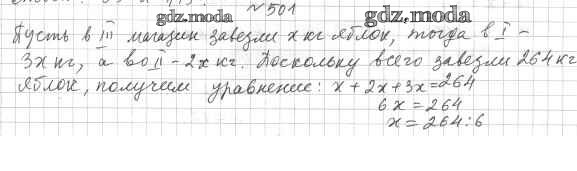 № 501
gdz.moda gdz.moda
Пусть в III магазин завезли x кг яблок, тогда в I –
3x кг, а во II – 2x кг. Поскольку всего завезли 264 кг
яблок, получим уравнение: x + 2x + 3x = 264
6x = 264
x = 264 : 6